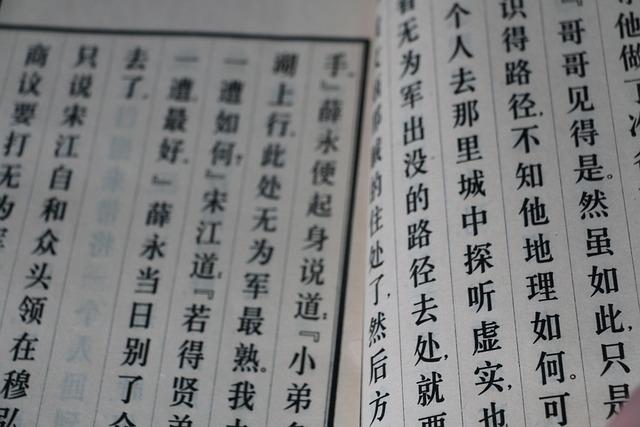 他做了
『哥哥见得是。然虽如此，只是
识得路径，不知他地理如何。可
个人去那里城中探听虚实，也
看无为军出没的路径去处，就要
的住处了，然后方
手。』薛永便起身说道：『小弟
湖上行。此处无为军最熟。我
一遭如何？』宋江道：『若得贤弟
一遭最好。』薛永当日别了
去了。
只说宋江自和众头领在穆弘
商议要打无为军